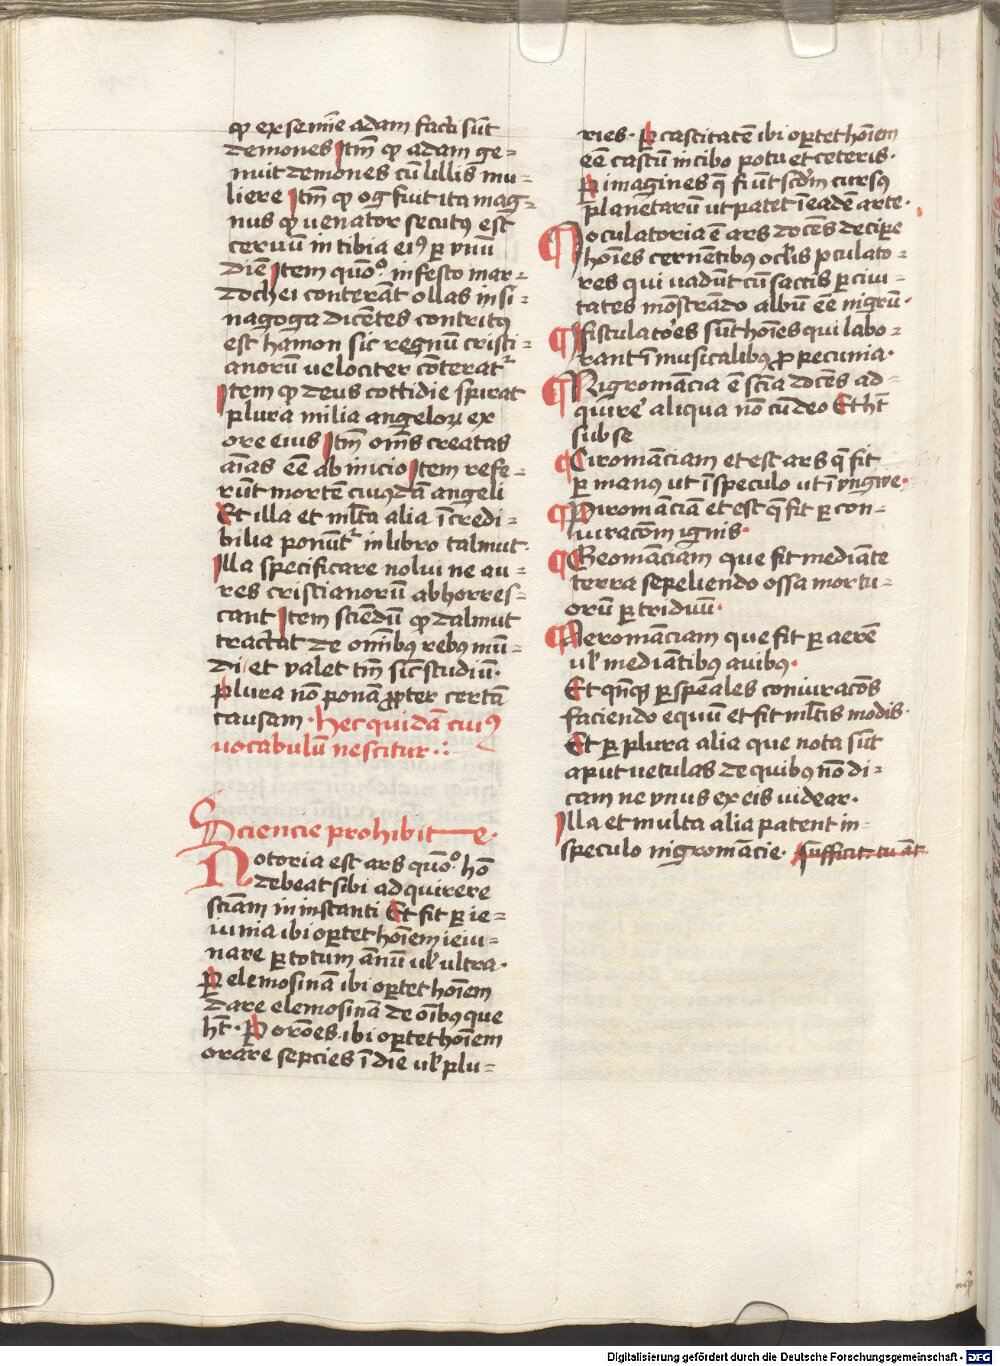 ꝙ ex semīe adam facti sūt
demones Itm̄ ꝙ adam ge=
nuit demones cū lillis mu=
liere Itm̄ ꝙ og fuit ita mag=
nus ꝙ venator secutꝰ est
ceruū in tibia eiꝰ ꝑ vnū
diē Item quōº in festo mar=
dochei conterāt ollas in si=
nagoga dicētes contritꝰ
est hamon sic regnū cristi=
anorū velociter cōterat᷑
Item ꝙ deus cottidie spirat
plura milia angeloꝝ ex
ore eius Itm̄ om̄s creatas
aīas eē ab inicio Item refe=
rūt mortē cuiꝰdā angeli
Et illa et ml̄ta alia īcredi=
bilia ponūt᷑ in libro talmut·
Illa specificare nolui ne au=
res cristianorū abhorres=
cant Item sciēdū ꝙ dalmut
tractat de omībꝰ rebꝰ mū=
di et valet tm̄ sic studiū·
Plura nō ponā ꝓpter certā
causam · Hec quidā cuiꝰ
vocabulū nescitur ·:·
Sciencie prohibite·
Notoria est ars quōº hō
debeat sibi adquirere
sciam in instanti Et fit ꝑ ie=
iunia ibi oꝑtet hōiem ieiu=
nare ꝑ totum annū ul̄ ultra·
Per elemosinā ibi oꝑtet hōiem
dare elemosinā de oībꝰ que
ht̄· Per orōes· ibi oꝑtet hōiem
orare sepcies ī die ul̄ plu=
ries· Per castitatē ibi oꝑtet hōiem
eē castū in cibo potu et ceteris·
Per imagines q̄ fiūt scdm̄ cursꝰ
planetarū ut patet ī eadē arte·
Ioculatoria ē ars docēs decipe
hōies cernētibꝰ oclis ꝑ culato=
res qui vadūt cū saccis ꝑ ciui=
tates mōstrādo albū eē nigrū·
Fistulatōes sūt hōies qui labo=
rant ī musicalibꝰ ꝓ pecunia·
Nigromācia ē scīa docēs ad=
quire aliqua nō cū deo Et ht̄
sub se
Ciromāciam et est ars q̄ fit
ꝑ manꝰ ut ī speculo ut ī vngwe·
Piromāciā et est q̄ fit ꝑ con=
iuracōm ignis·
Geomāciam que fit mediāte
terra sepeliendo ossa mortu=
orū ꝑ triduū·
Aeromāciam que fit ꝑ aerē
ul̄ mediātibꝰ auibꝰ·
Et qn̄qꝫ ꝑ sp̄eales coniuracōs
faciendo equū et fit ml̄tis modis·
Et ꝑ plura alia que nota sūt
aput vetulas de quibꝰ nō di=
cam ne vnus ex eis videar·
Illa et multa alia patent in
speculo nigromācie·